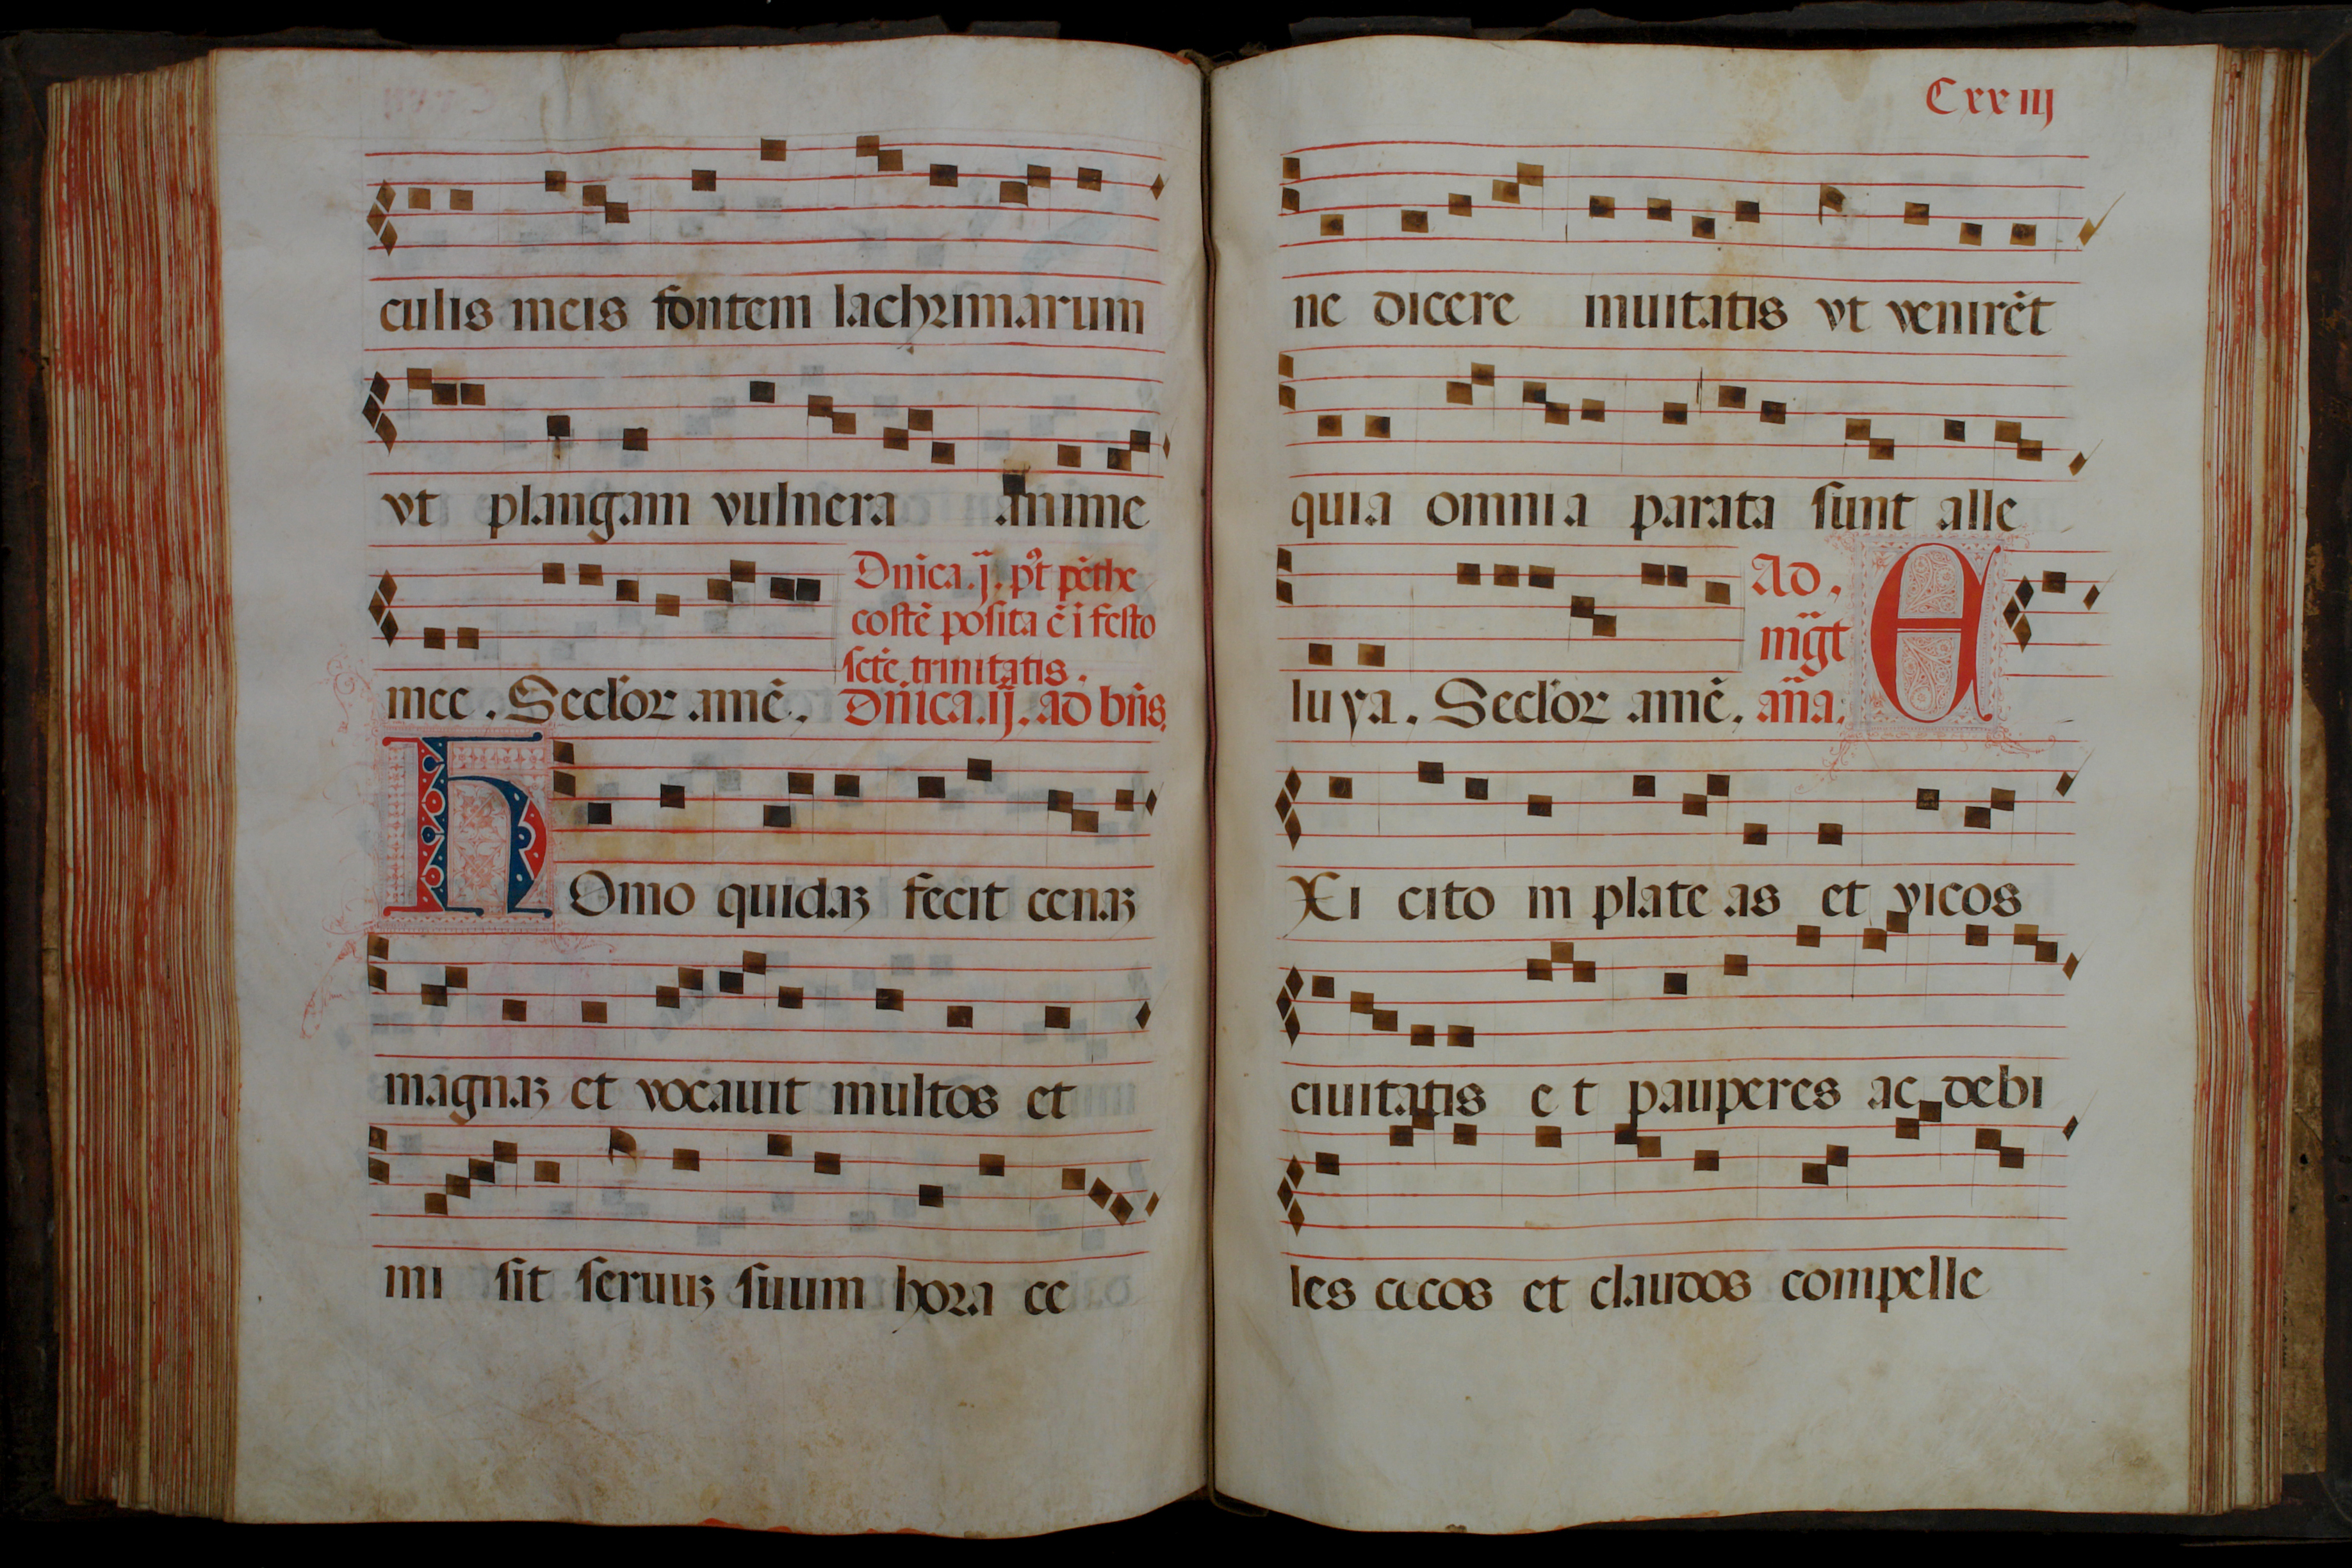 culis meis fontem lachrimarum
vt plangam vulnera anime
Dnica.ij. p̃t pẽthe
costẽ posita ẽ i festo
sctẽ trinitatis.
mee. Seclor amẽ. Dnica.iij. ad bñs.
HOmo quidaʒ fecit cenaʒ
magnaʒ et vocauit multos et
mi sit seruuʒ suum hora ce
Cxxiiij
ne dicere inuitatis vt venirẽt
quia omnia parata sunt alle
Ad.
mg̃t
luya. Seclor amẽ. aña.
EXi cito in plateas et vicos
ciuitatis et pauperes ac debi
les cecos et claudos compelle